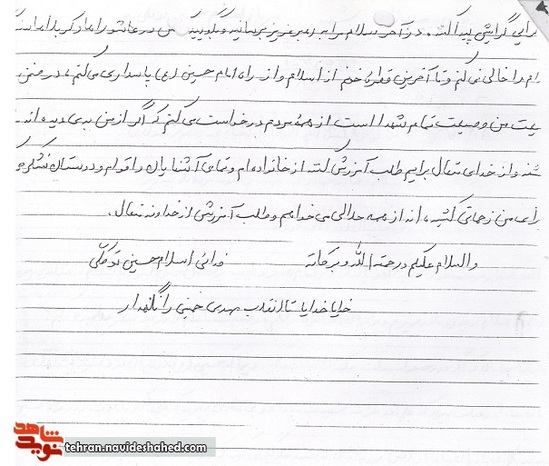 برایی گرایش پیدا کند. در آخر سلام مرا به رهبر عزیز برسانید و بگویید من در عاشورا مادر کربلا امامت
را خالی نمی‌کنم و تا آخرین قطره خونم از اسلام و از راه امام حسین (ع) پاسداری می‌کنم، در ضمن
وصیت من وصیت تمام شهدا است از همه مردم درخواست می‌کنم که اگر از من بدی دیده‌اند
و از خدای متعال برایم طلب آمرزش کنند از خانواده‌ام و تمامی آشنایان و اقوام و دوستان تشکر
برای من زحماتی کشیده‌اند از همه حلالی می‌خواهم و طلب آمرزش از خداوند متعال.
والسلام علیکم و رحمة الله و برکاته
فدائی اسلام حسین توکلی
خدایا خدایا تا انقلاب مهدی خمینی را نگهدار
نوید شاهد
tehran.navideshahed.com